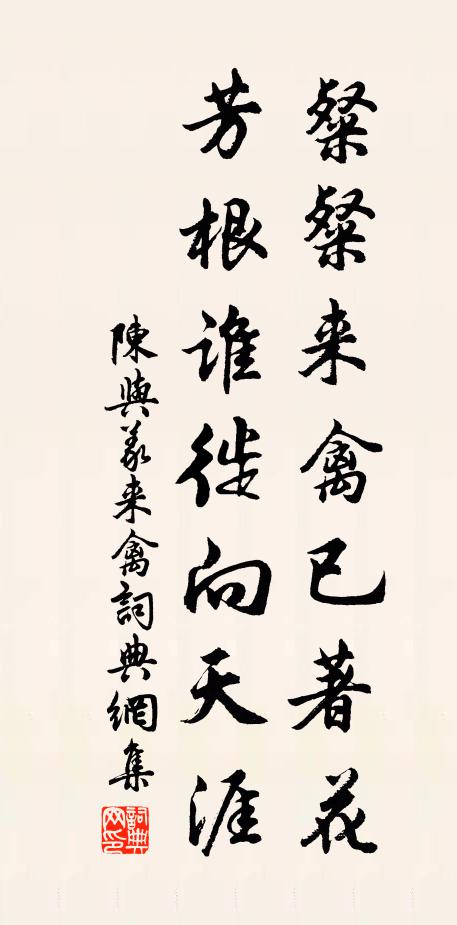 粲粲来禽已著花
芳根谁徙向天涯
陳與義来禽詞典網集
詞典网印